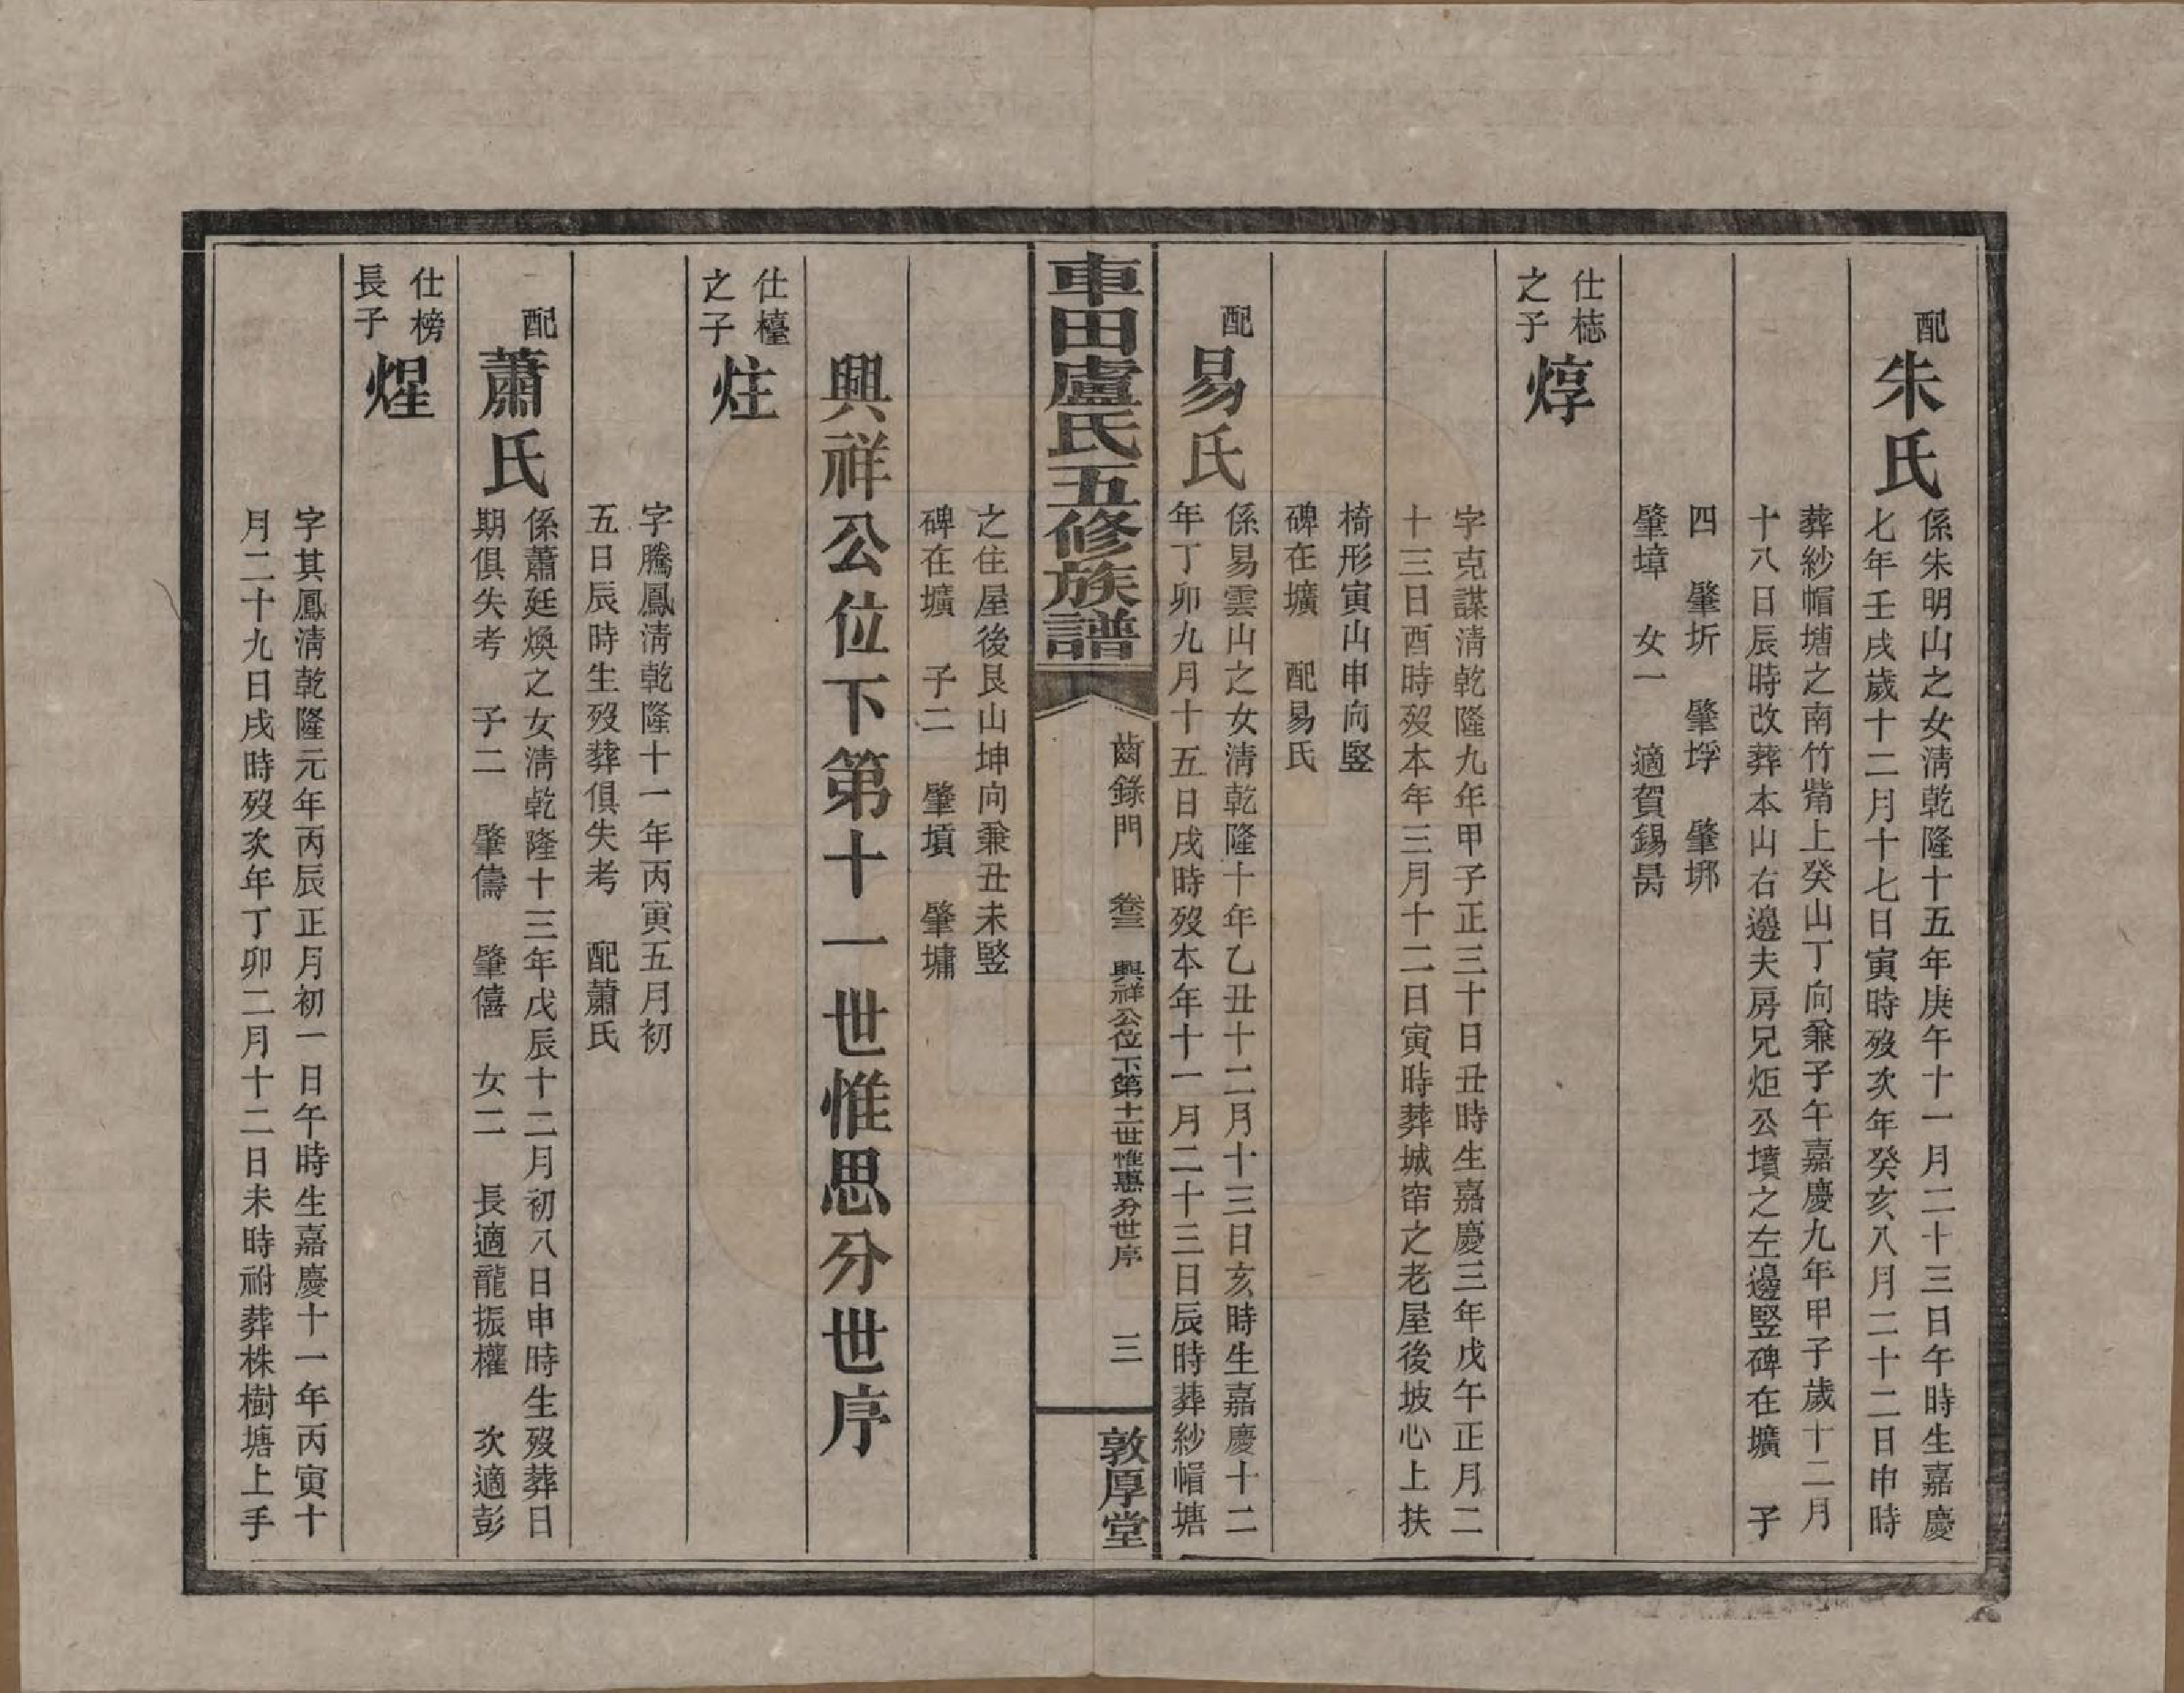 配朱氏
係朱明山之女淸乾隆十五年庚午十一月二十三日午時生嘉慶
七年壬戌歲十二月十七日寅時歿次年癸亥八月二十二日申時
葬紗帽塘之南竹觜上癸山丁向兼子午嘉慶九年甲子歲十二月
十八日辰時改葬本山右邊夫房兄炬公墳之左邊竪碑在壙 子
四 肇圻 肇垺 肇垹
肇墇 女一 適賀錫昺
仕梽之子 焞
字克謀淸乾隆九年甲子正三十日丑時生嘉慶三年戊午正月二
十三日酉時歿本年三月十二日寅時葬城帘之老屋後坡心上扶
椅形寅山申向竪
碑在壙 配易氏
配易氏
係易雲山之女淸乾隆十年乙丑十二月十三日亥時生嘉慶十二
年丁卯九月十五日戌時歿本年十一月二十三日辰時葬紗帽塘
車田盧氏五修族譜
齒錄門 卷三 興祥公位下第十一世惟思分世序 三
敦厚堂
之住屋後艮山坤向兼丑未竪
碑在壙 子二 肇墳 肇墉
興祥公位下第十一世惟思分世序
仕㯖之子 炷
字騰鳳淸乾隆十一年丙寅五月初
五日辰時生歿葬俱失考 配蕭氏
配蕭氏
係蕭廷煥之女淸乾隆十三年戊辰十二月初八日申時生歿葬日
期俱失考 子二 肇儔 肇僖 女二 長適龍振權 次適彭
仕榜長子 煋
字其鳳淸乾隆元年丙辰正月初一日午時生嘉慶十一年丙寅十
月二十九日戌時歿次年丁卯二月十二日未時祔葬株樹塘上手